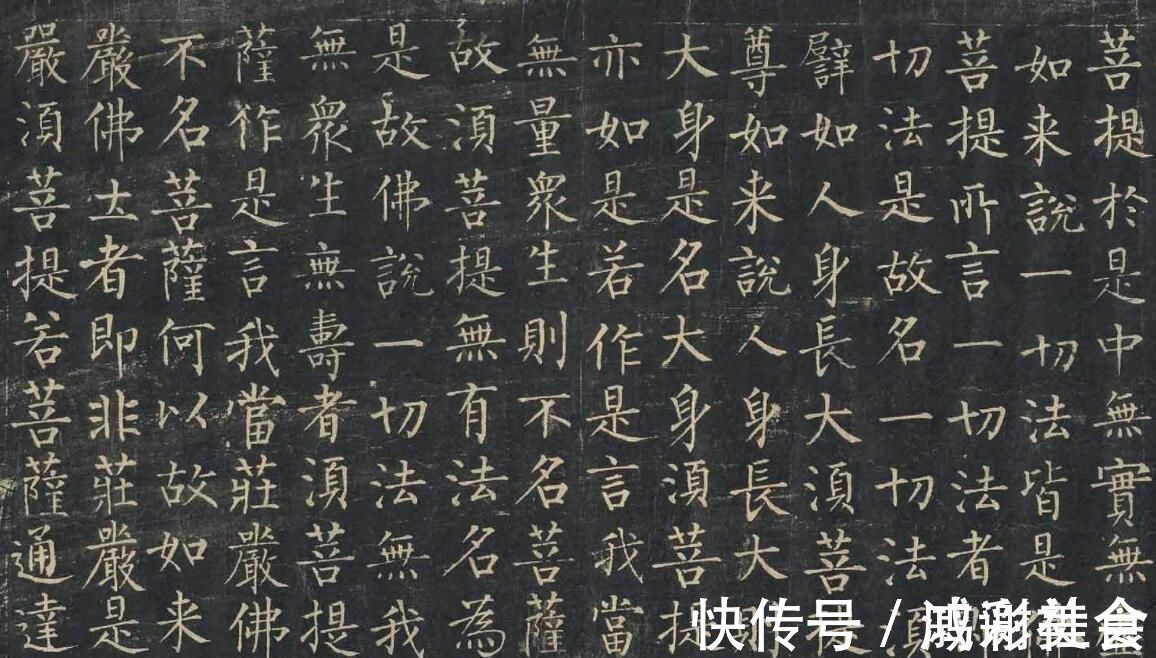 菩提於是中無實無
如来說一切法皆是
菩提所言一切法者
切法是故名一切法須
譬如人身長大須菩提
尊如来說人身長大則
大身是名大身須菩提
亦如是若作是言我當
無量眾生則不名菩薩
故須菩提無有法名為
是故佛說一切法無我
無眾生無壽者須菩提
薩作是言我當莊嚴佛
不名菩薩何以故如来
嚴佛土者即非莊嚴是
嚴須菩提若菩薩通達
快传号 /